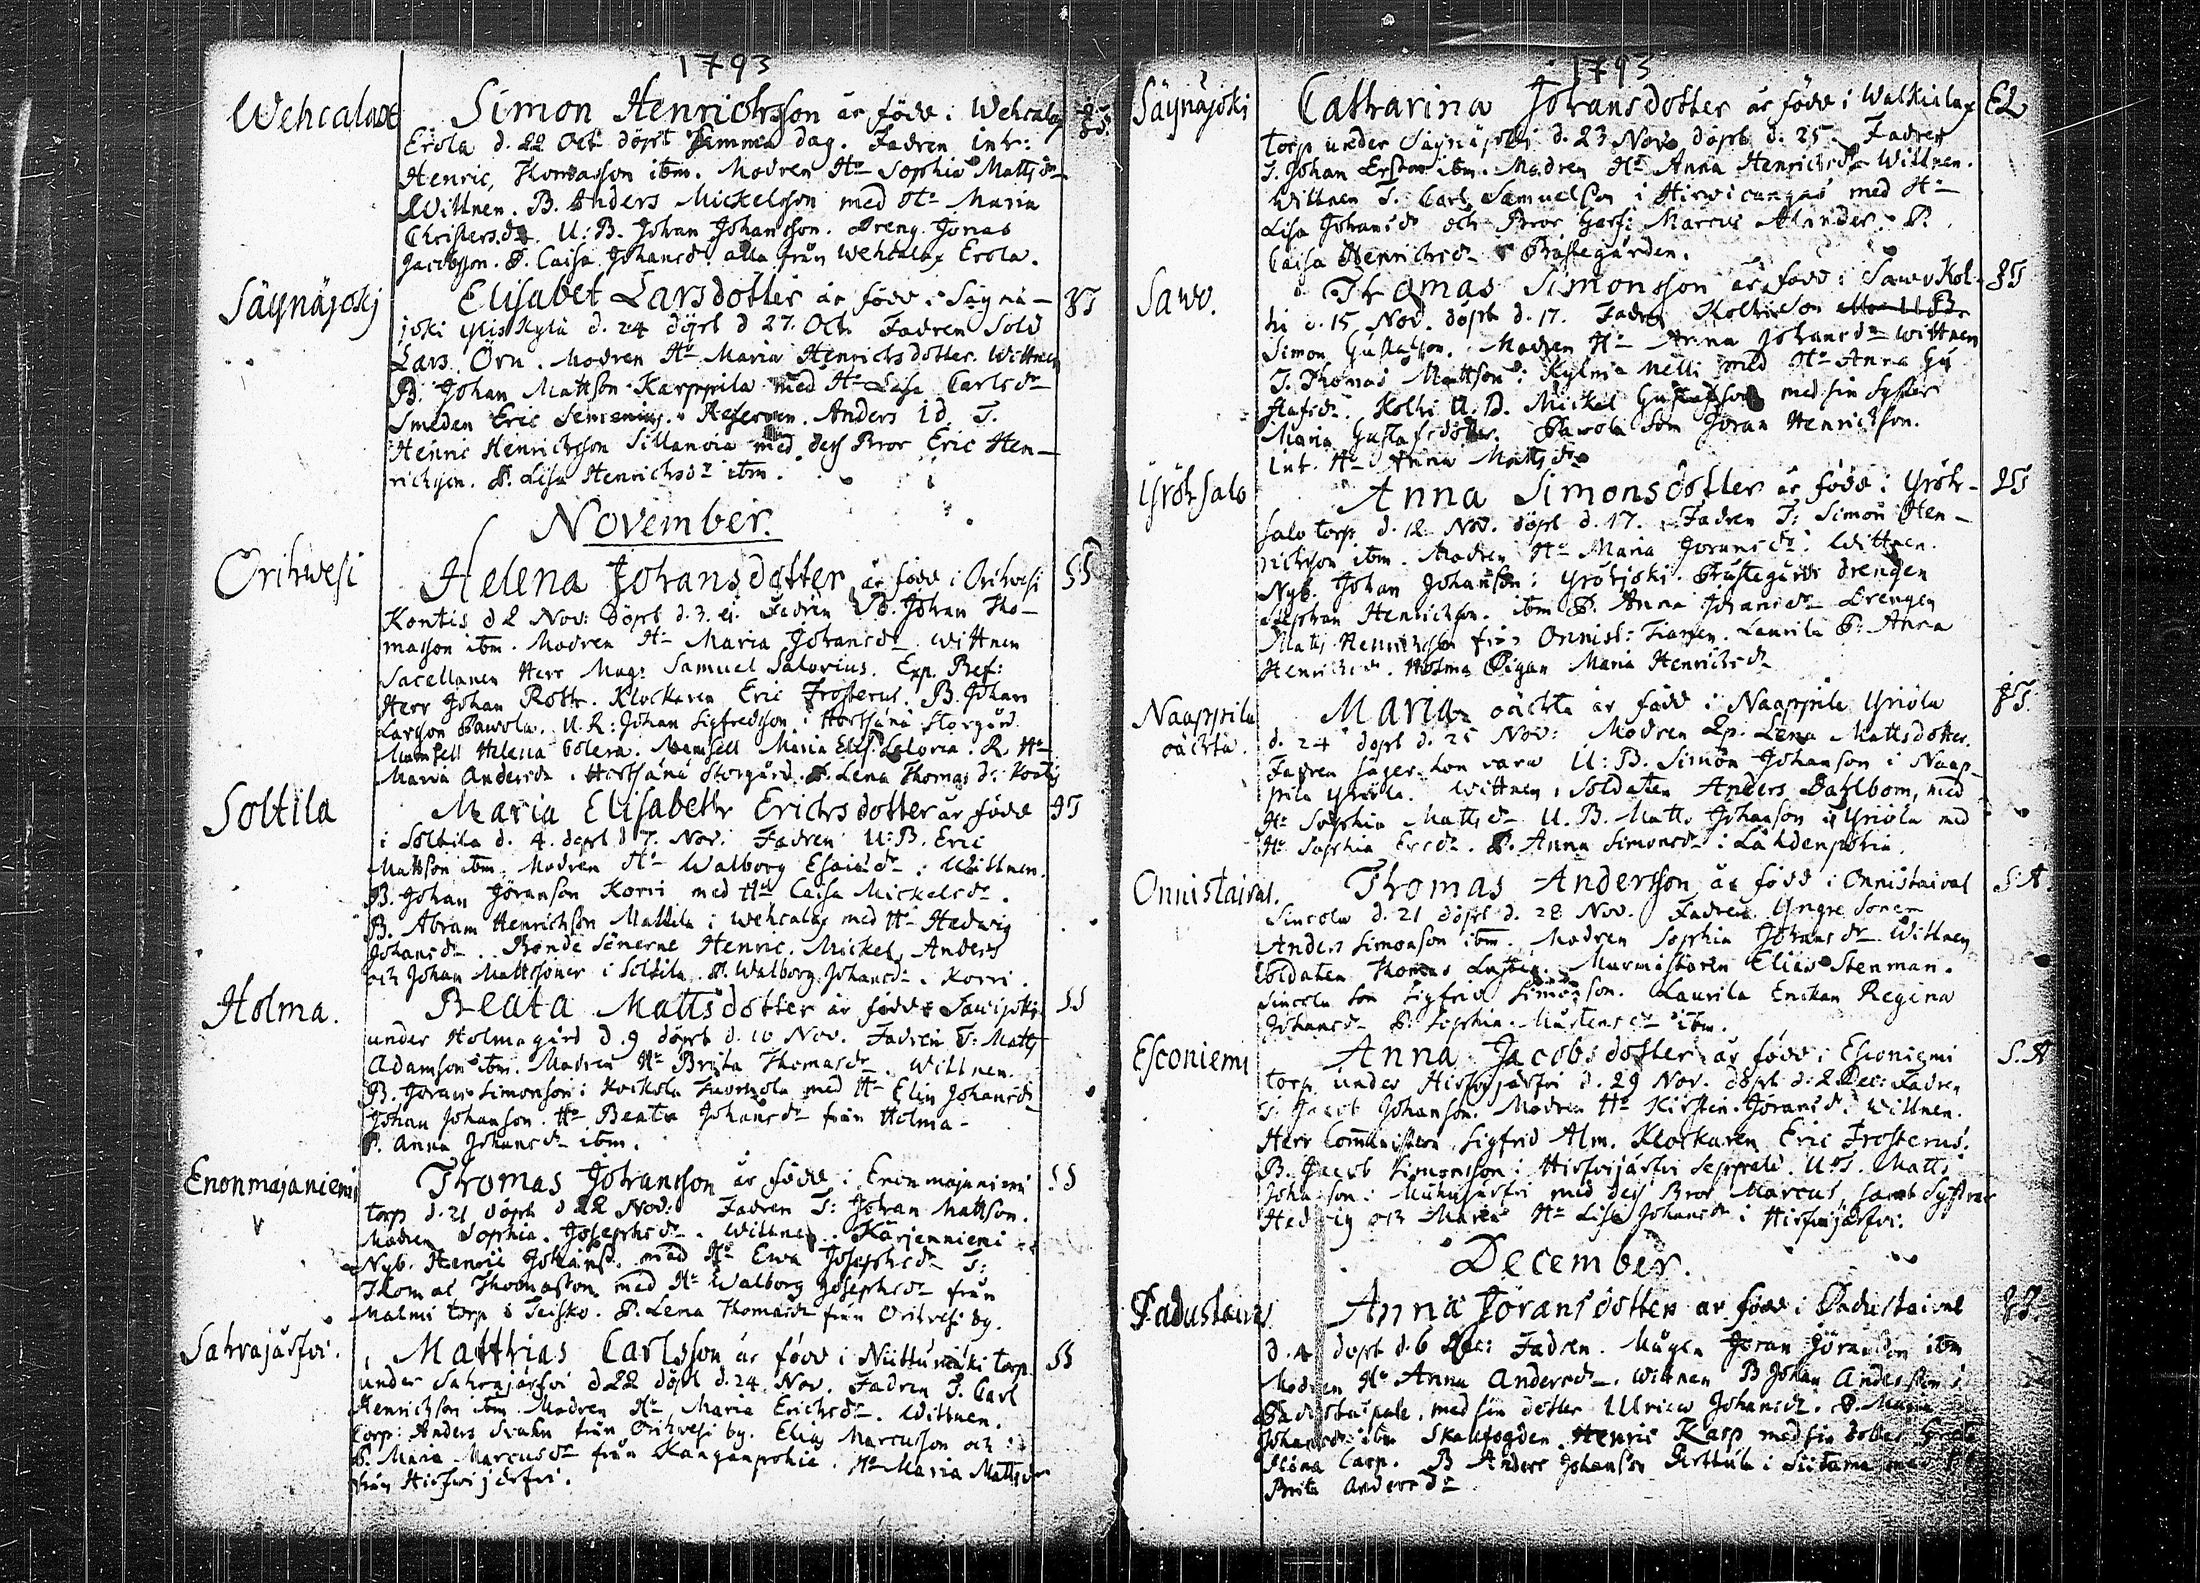 1793
Wehcalax Simon Henrichsson är född i Wehcalax
Erola d. 22 Oct döpt samma dag. Fadren Inh:
Henric Thomasson ibm. Modren Hu Sophia Mattsdr
Wittnen. B. Anders Mickelsson med Hu Maria
Christersdr. U:B. Johan Johansson. Dreng Jonas
Jacobsson. P. Caisa Johansdr alla från Wehcalax Erola.
Säynäjoki Elisabet Larsdotter är född i Säynä-
joki Yliskylä d. 24 döpt d 27. Oct. Fadren Sold
Lars Örn. Modren Hu Maria Henrichsdotter. Wittnen
B. Johan Mattson Karppila med Hu Lisa Carlsdr
Smeden Eric. Reserven Anders Id. T.
Henric Henrichsson Sillanoia med dess Bror Eric Hen-
richson. P. Lisa Henrichsdr ibm.
November.
Orihwesi Helena Johansdotter är född i Orihvesi
Kontis d 2 Nov: döpt d. 3. Fadren B. Johan Tho-
masson ibm. Modren Hu Maria Johansdr. Wittnen
Sacellanen Herr Mag: Samuel Salovius. Exp. Pref:
Herr Johan Roth. Klockaren Eric Frosterus. B. Johan
Larsson Pawola. U.R: Johan Sigfredsson i Storgård.
Mamsell Helena Colera. Mamsell Maria Elis. R. Hu
Maria Andersdr i Storgård. P. Lena Thomasdr Kontis
Soltila Maria Elisabeth Erichsdotter är född
i Soltila d. 4. döpt d 7. Nov. Fadren U:B. Eric
Mattson ibm. Modren Hu Walborg Esaiædr. Wittnen.
B. Johan Jöranson Korri med Hu Caisa Mickelsdr.
B. Abram Henrichson Mattila i Wehcalax med Hu Hedwig
Johansdr. Bonde Sönerne Henric, Mickel, Anders
och Johan Mattssoner i Soltila. P. Walborg Johansdr. Korri.
Holma. Beata Mattsdotter är född i
under Holma gård d. 9 döpt d. 10 Nov. Fadren T: Matts
Adamson ibm. Modren Hu Brita Thomasdr. Wittnen.
B. Jöran Simonson i med Hu Elin Johansdr
Johan Johanson. Hu Beata Johansdr från Holma.
P. Anna Johansdr ibm.
Enonmajaniemi Thomas Johansson är född i Enonmajaniemi
torp d. 21 döpt d 22 Nov: Fadren T: Johan Mattson.
Modren Sophia Josephsdr. Wittnen. Kärjenniemi
Nyb. Henric Johanss. med Hu Ewa Josephsdr T:
Thomas Thomasson med Hu Walborg Josephsdr från
Malmi torp i Teisko. P. Lena Thomasdr från Orihvesi by.
Sahrajärfvi. Matthias Carlsson är född i Niittumäki torp
under Sahrajärfvi d 22 döpt d. 24. Nov. Fadren T. Carl
Henrichson ibm. Modren Hu Maria Erichsdr. Wittnen.
Corp: Anders Svahn från Orihvesi by. Elias Marcusson och
P. Maria Marcusdr från Kanganpohia. Hu Maria Mattsdr
från Hirfvijärfvi.
1793
Säynäjoki Catharina Johansdotter är född i Walkialax
torp under Säynäjoki d. 23 Nov döpt d. 25. Fadren
T. Johan Erson ibm. Modren Hu Anna Henrichsdr Wittnen.
Wittnen T. Carl Samuelson i Hirwicangas med Hu
Lisa Johansdr och Bror Marcus Alander. P.
Caisa Henrichsdr Prästegården.
Sawo. Thomas Simonsson är född i Sawo Kol-
hi d. 15 Nov. döpt d. 17. Fadren
Simon Gustafson. Modren Hu Anna Johansdr Wittnen
T. Thomas Mattson i Kylmä Nelli med Hu Anna Gu
stafsdr. Kolhi U.B. Mickel Gustafson med sin Syster
Maria Gustafsdotter. Pawola Son Jöran Henrichson.
Inh. Hu Anna Mattsdr
Yröhsalo Anna Simonsdotter är född i Yröh-
salo torp d. 12 Nov. döpt d. 17. Fadren T: Simon Hen-
richson ibm. Modren Hu Maria Joransdr. Wittnen.
Nyb. Johan Johanson i Yröhjoki. Prästegårds drengen
Henrichson. ibm P. Anna Johansdr Drengen
Matts Henrichson från Onnist: Laurila P: Anna
Henrichsdr. Holma Pigan Maria Henrichsdr
Naappila oächta. Maria oächta är född i Naappila Yriölä
d. 24 döpt d. 25 Nov: Modren Qp. Lena Mattsdotter.
Fadren säger hon vara U:B. Simon Johanson i Naap-
pila Yriölä. Wittnen, Soldaten Anders Dahlbom, med
Hu Sophia Mattsdr. U.B. Matts Johanson i Yriölä med
Hu Sophia Ersdr. P. Anna Simonsdr i Lähdenpohia.
Onnistaival. Thomas Andersson är född i Onnistaival
Sincola d. 21 döpt d. 28 Nov. Fadren Yngre Sonen
Anders Simonson ibm. Modren Sophia Johansdr Wittnen
Soldaten Thomas. Murmästaren Elias Stenman.
Sincola Son Sigfrid Simonson. Laurila Enckan Regina
Johansdr P: Sophia Mårtensdr ibm.
Esconiemi Anna Jacobsdotter är född i Esconiemi
torp under Hirfvijärfvi d. 29 Nov. döpt d. 2 Dec: Fadren
T: Jacob Johanson. Modren Hu Kirstin Joransdr. Wittnen.
Herr Comministern Sigfrid Alm. Klockaren Eric Frosterus.
B. Jacob Simonsson i Hirfvijärfvi Seppälä. U.S. Matts
Johanson i med dess Bror Marcus, samt Systrar
Hedvig och Maria Hu Lisa Johansdr i Hirfvijärfvi.
December.
Padustaival Anna Joransdotter är född i Padustaival
d. 4 döpt d. 6 Dec: Fadren. Mågen Joran Jöranson ibm
Modren Hu Anna Andersdr. Wittnen B Johan Andersson i
med sin dotter Ulrica Johansdr. P. Maria
Johansdr ibm Skallfogden Henric Kasp med sin dotter Greta
Carp. B Anders Johanson Perttula i Siitama med
Brita Andersdr